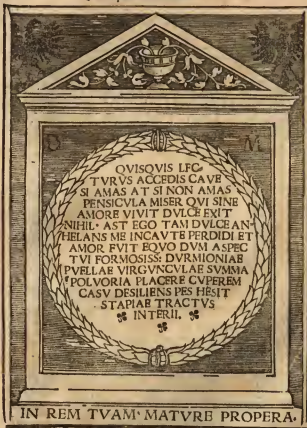 D M
QVISQVIS LEC
TVRVS ACCEDIS CAVE
SI AMAS AT SI NON AMAS
PENSICVLA MISER QVI SINE
AMORE VIVIT DVLCE EXIT
NIHIL· AST EGO TAM DVLCE AN-
HELANS ME INCAVTE PERDIDI ET
AMOR FVIT EQVO DVM ASPEC
TVI FORMOSISS: DVRMIONIAE
PVELLAE VIRGVNCVLAE SVMMA
POLVORIA PLACERE CVPEREM
CASV DESILIENS PES HESIT
STAPIAE TRACTVS
INTERII.
IN REM TVAM· MATVRE PROPERA.